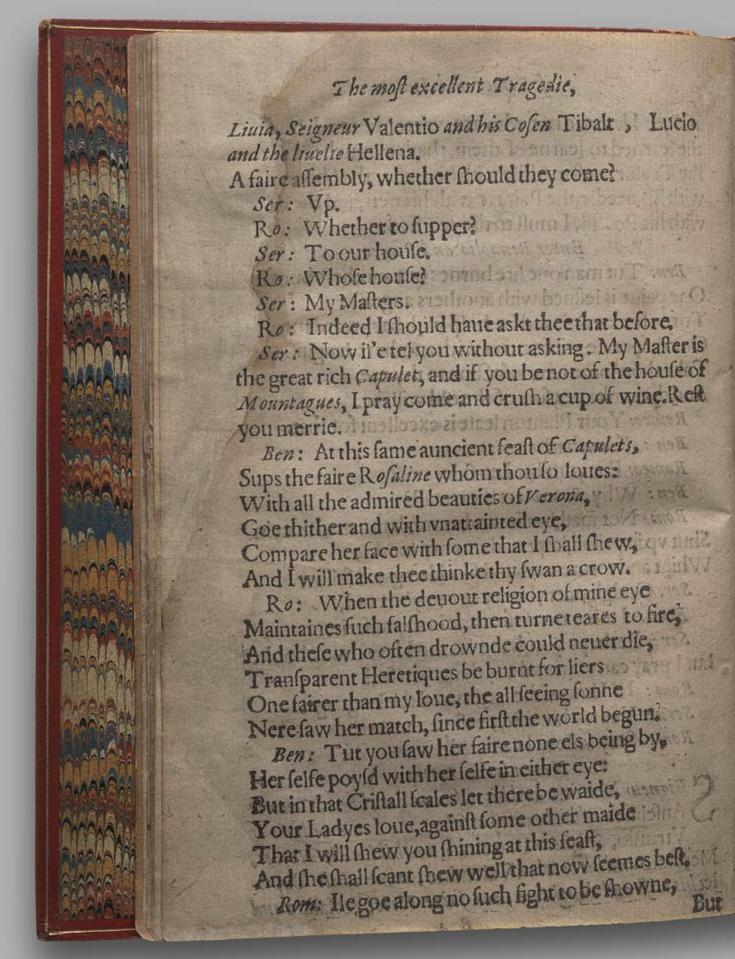 The moſt excellent Tragedie,
Liuia, Seigneur Valentio and his Coſen Tibalt , Lucio
and the liuelie Hellena.
A faire aſſembly, whether ſhould they come?
Ser: Vp.
Ro: Whether to ſupper?
Ser: To our houſe.
Ro: Whoſe houſe?
Ser: My Maſters.
Ro: Indeed I ſhould haue askt thee that before.
Ser: Now il'e tel you without asking. My Maſter is
the great rich Capulet, and if you be not of the houſe of
Mountagues, I pray come and cruſh a cup of wine. Reſt
you merrie.
Ben: At this ſame auncient feaſt of Capulets,
Sups the faire Roſaline whom thou ſo loues:
With all the admired beauties of Verona,
Goe thither and with vnattainted eye,
Compare her face with ſome that I ſhall ſhew,
And I will make thee thinke thy ſwan a crow.
Ro: When the deuout religion of mine eye
Maintaines ſuch falſhood, then turne teares to fire,
And theſe who often drownde could neuer die,
Tranſparent Heretiques be burnt for liers
One fairer than my loue, the all ſeeing ſonne
Nere ſaw her match, ſince firſt the world begun.
Ben: Tut you ſaw her faire none els being by,
Her ſelfe poyſd with her ſelfe in either eye:
But in that Criſtall ſcales let there be waide,
Your Ladyes loue, againſt ſome other maide
That I will ſhew you ſhining at this feaſt,
And ſhe ſhall ſcant ſhew well that now ſeemes beſt.
Rom: Ile goe along no ſuch ſight to be ſhowne,
But